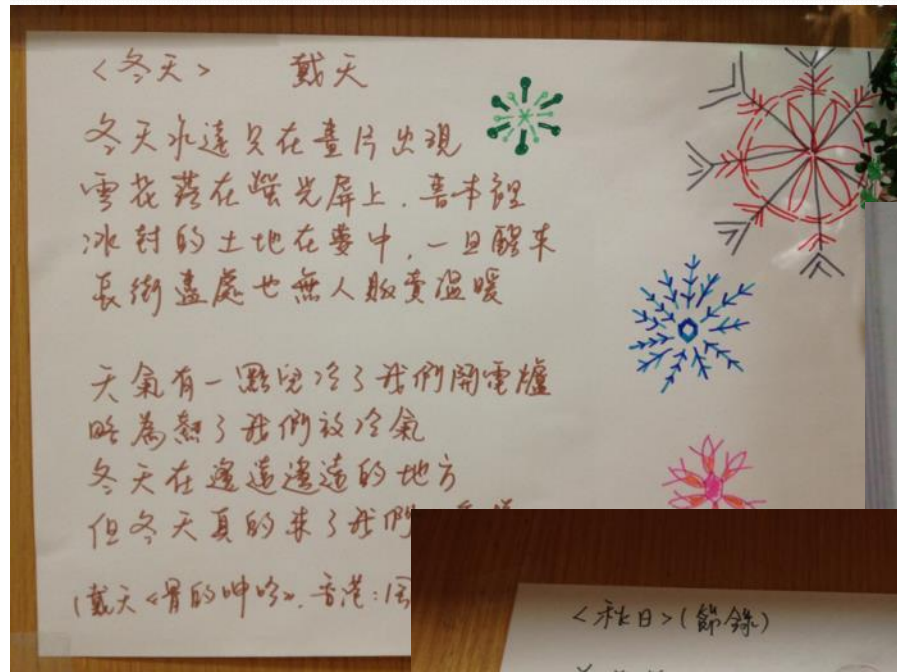 <冬天> 戴天
冬天永遠只在畫片出現
雪花落在螢光屏上，書本裡
冰封的土地在夢中，一旦醒來
長街盡處也無人販賣溫暖
天氣有一點兒冷了我們開電爐
略為熱了我們放冷氣
冬天在遙遠遙遠的地方
但冬天真的來了我們
(戴天《骨的呻吟》，香港：
<秋日>(節錄)